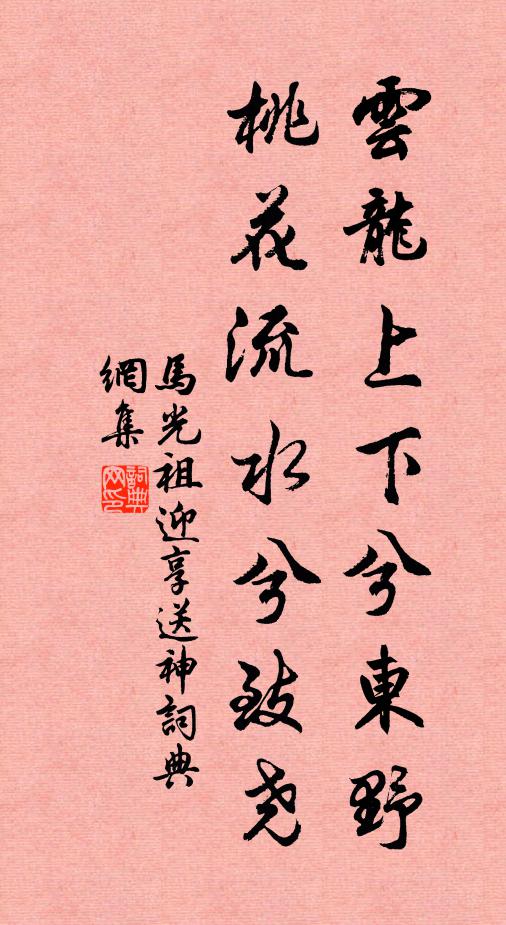 雲龍上下兮東野
桃花流水兮致堯
馬光祖迎享送神詞典
網集
詞典網印